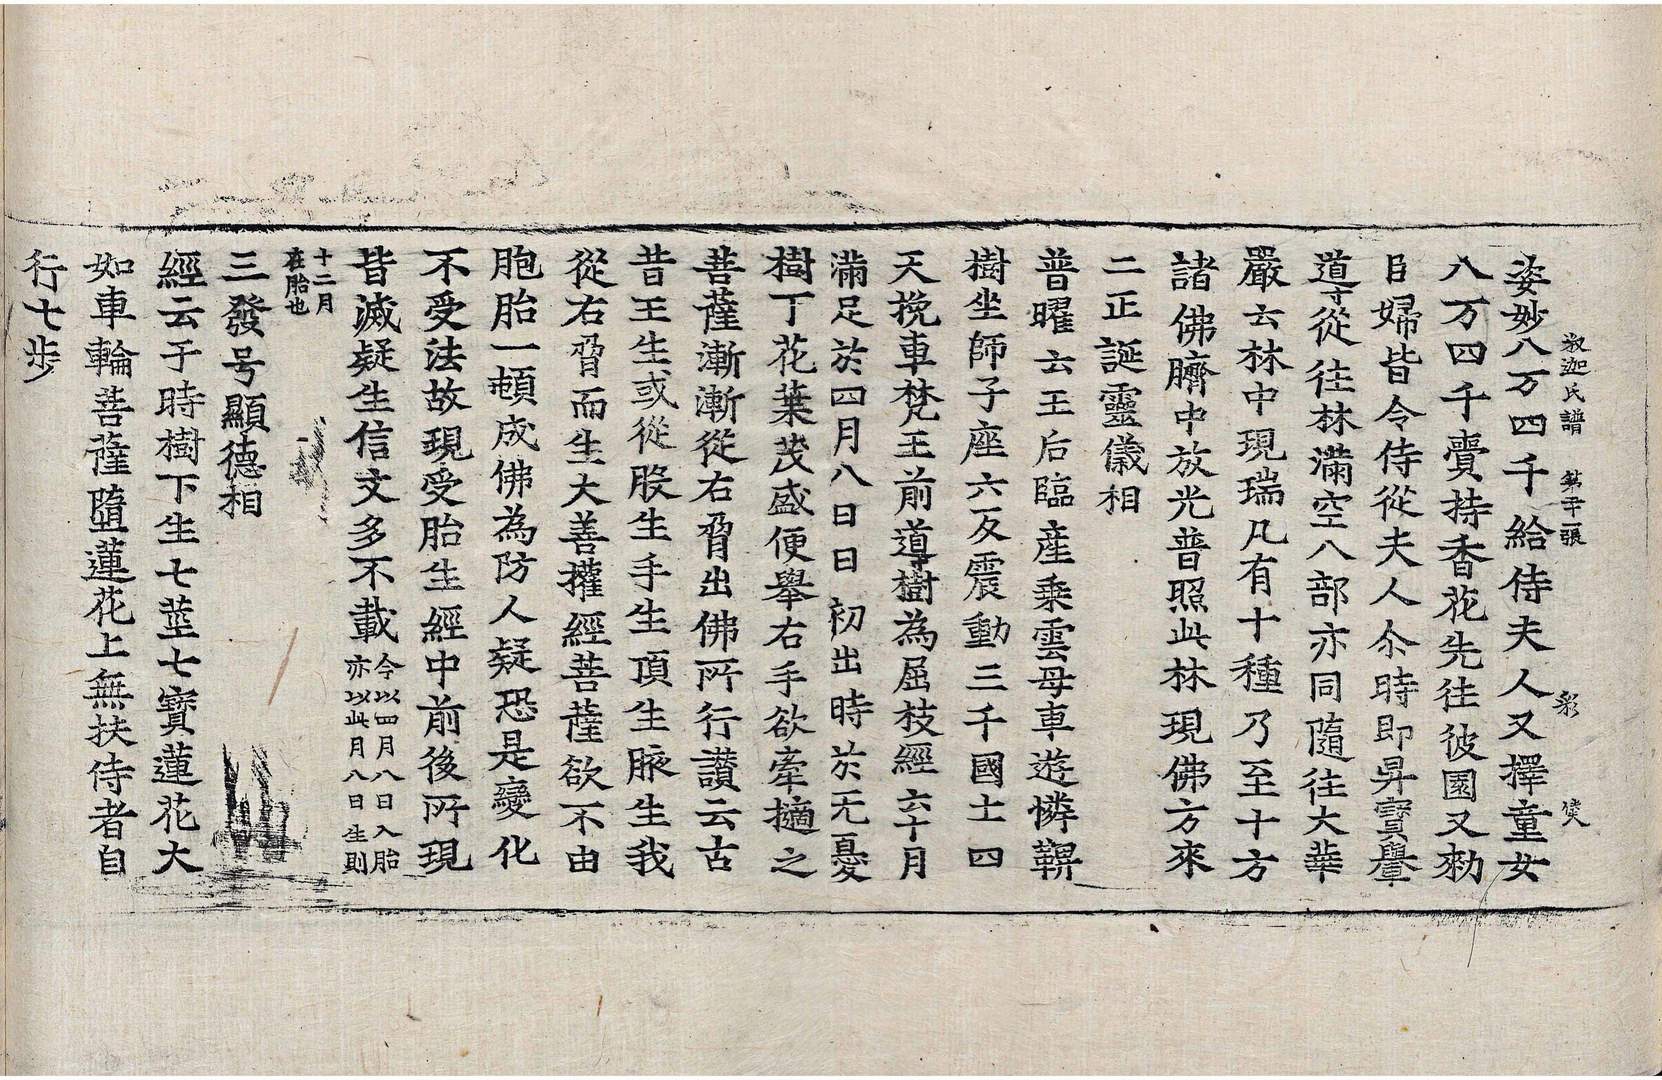 釈迦氏譜 第二十張 彩 𤇆
姿妙八万四千給侍夫人又擇童女
八万四千賷持香花先往彼園又勑
臣婦皆令侍從夫人尒時即昇寳轝
導從往林滿空八部亦同隨往大華
嚴云林中現瑞凡有十種乃至十方
諸佛臍中放光普照此林現佛方來
二正誕靈儀相
普曜云王后臨産乗雲母車遊憐鞞
樹坐師子座六反震動三千國土四
天挽車梵王前導樹為屈枝經云十月
滿足於四月八日日初出時於无憂
樹丁花葉茂盛便舉右手欲牽擿之
菩薩漸漸從右脅出佛所行讃云古
昔王生或從股生手生頂生腋生我
從右脅而生大善攉經菩薩欲不由
胞胎一頓成佛為防人疑恐是變化
不受法故現受胎生經中前後所現
皆滅疑生信文多不載今以四月八日入胎亦以此月八日生則
十二月在胎也
三發号顯德相
經云于時樹下生七莖七寳蓮花大
如車輪菩薩墮蓮花上無扶侍者自
行七步